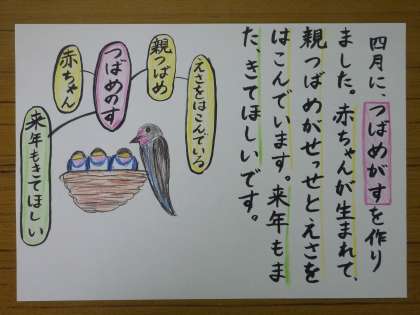 四月に、つばめがすを作り
ました。赤ちゃんが生まれて、
親つばめがせっせとえさを
はこんでいます。来年もま
た、きてほしいです。
えさをはこんでいる
親つばめ
つばめのす
赤ちゃん
来年もきてほしい